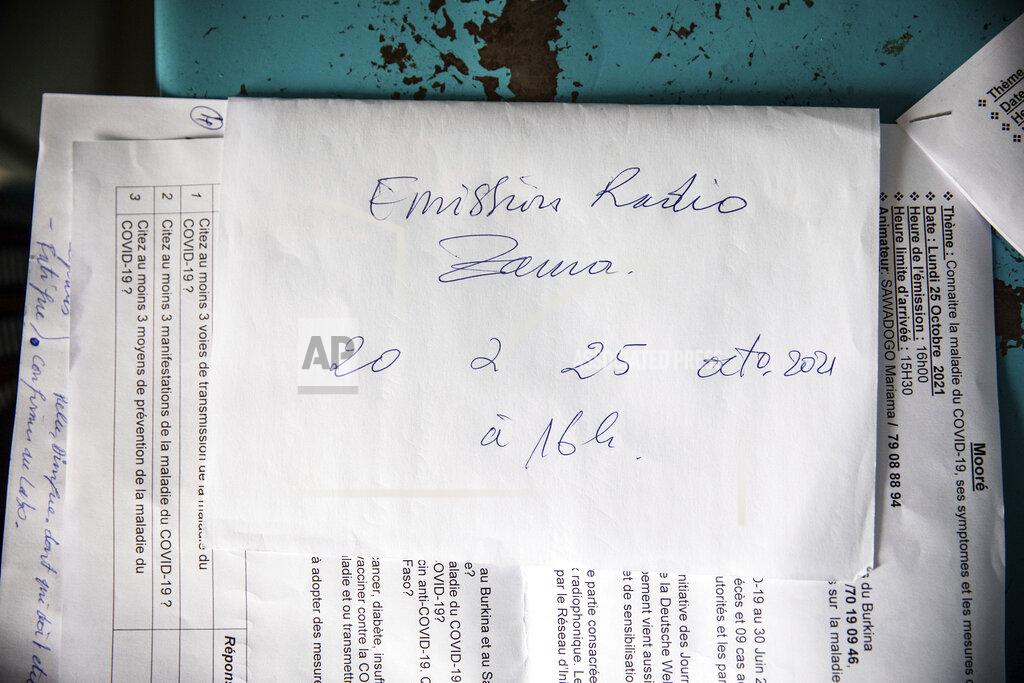 Emission Radio
Zama.
20 2 25 octo. 2021
à 16h.
AP
ASSOCIATED PRESS
1 Citez au moins 3 voies de transmission de la maladie du
COVID-19 ?
2 Citez au moins 3 manifestations de la maladie du COVID-19 ?
3 Citez au moins 3 moyens de prévention de la maladie du
COVID-19 ?
Répons
Mooré
❖ Thème : Connaitre la maladie du COVID-19, ses symptomes et les mesures
❖ Date : Lundi 25 Octobre 2021
❖ Heure de l'émission : 16h00
❖ Heure limite d'arrivée : 15H30
❖ Animateur: SAWADOGO Mariama / 79 08 88 94
Thème
Date
He
s du Burkina
/70 19 09 46,
s sur la maladie
0-19 au 30 Juin 2
écès et 09 cas a
utorités et les par
nitiative des Journ
e la Deutsche Wel
pement vient aussi
et de sensibilisatio
e partie consacrée
radiophonique. Le
par le Réseau d'Ini
au Burkina et au Sa
e?
aladie du COVID-19
OVID-19?
cin anti-COVID-19. C
Faso?
ancer, diabète, insuf
vacciner contre la CO
ladie et ou transmettr
à adopter des mesure